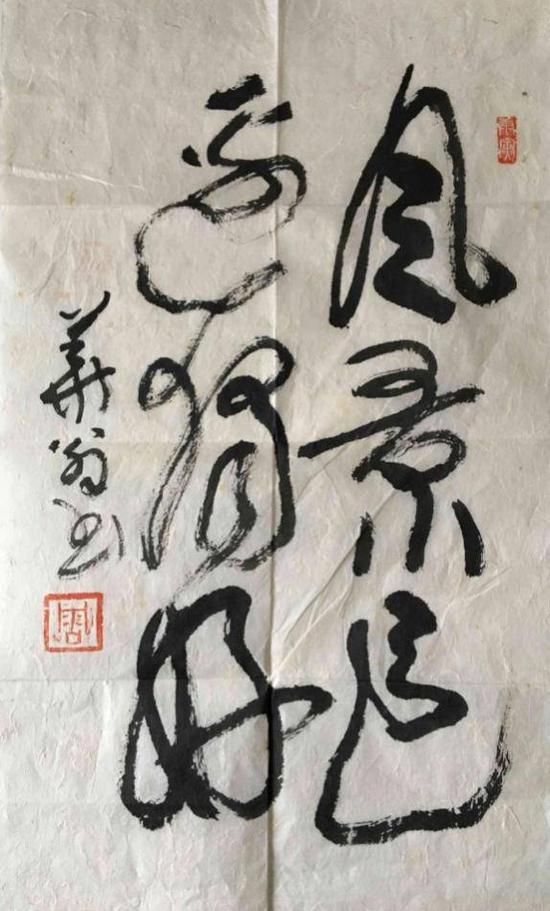 風景這
邊獨好
華翁书